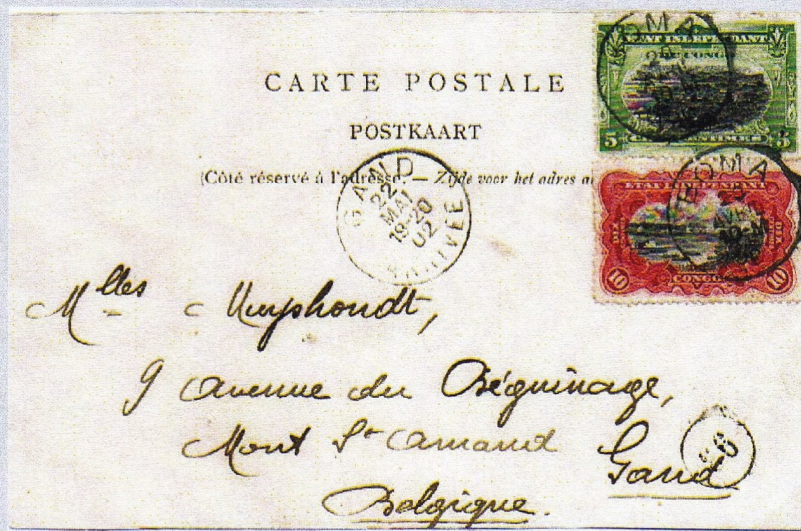 CARTE POSTALE
POSTKAART
(Côté réservé à l'adresse. — Zijde voor het adres
GAND
22
MAI
19-20
02
ARRIVÉE
BOMA
ETAT INDEPENDANT
DU CONGO
5 CENTIMES 5
BOMA
AVRIL
ETAT INDEPENDANT
DIX
10 CONGO 10
Mlles Muyshondt,
9 avenue du Béguinage,
Mont St Amand Gand
Belgique.